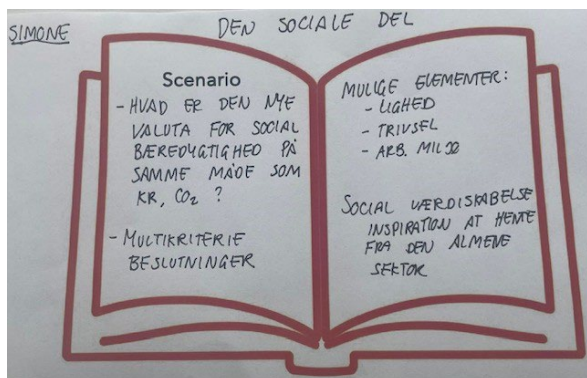 SIMONE
DEN SOCIALE DEL
Scenario
- HVAD ER DEN NYE
VALUTA FOR SOCIAL
BÆREDYGTIGHED PÅ
SAMME MÅDE SOM
KR, CO₂ ?
- MULTIKRITERIE
BESLUTNINGER
MULIGE ELEMENTER:
- LIGHED
- TRIVSEL
- ARB. MILJØ
SOCIAL VÆRDISKABELSE
INSPIRATION AT HENTE
FRA DEN ALMENE
SEKTOR